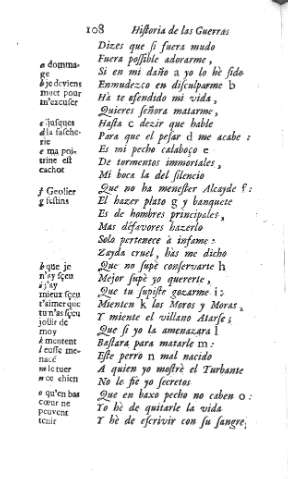 108 Historia de las Guerras
Dizes que si fuera mudo
Fuera possible adorarme,
Si en mi daño a yo lo hè sido
Enmudezco en disculparme b
Hà te ofendido mi vida,
Quieres señora matarme,
Hasta c dezir que hable
Para que el pesar d me acabe :
Es mi pecho calaboço e
De tormentos immortales,
Mi boca la del silencio
Que no ha menester Alcayde f:
El hazer plato g y banquete
Es de hombres principales,
Mas desfavores hazerlo
Solo pertenece à infame:
Zayda cruel, hàs me dicho
Que no supè conservarte h
Mejor supè yo quererte,
Que tu supiste gozarme i:
Mienten k los Moros y Moras,
Y miente el villano Atarfe;
Que si yo la amenazara l
Bastara para matarle m:
Este perro n mal nacido
A quien yo mostrè el Turbante
No le fie yo secretos
Que en baxo pecho no caben o:
Yo hè de quitarle la vida
Y hè de escrivir con su sangre,
a domma-
ge
b je deviens
muet pour
m'excuser
c jusques
d la fasche-
rie
e ma poi-
trine est
cachot
f Geolier
g festins
h que je
n'ay sçeu
i j'ay
mieux sçeu
t'aimer que
tu n'as sçeu
jouïr de
moy
k mentent
l eusse me-
nacé
m le tuer
n ce chien
o qu'en bas
cœur ne
peuvent
tenir